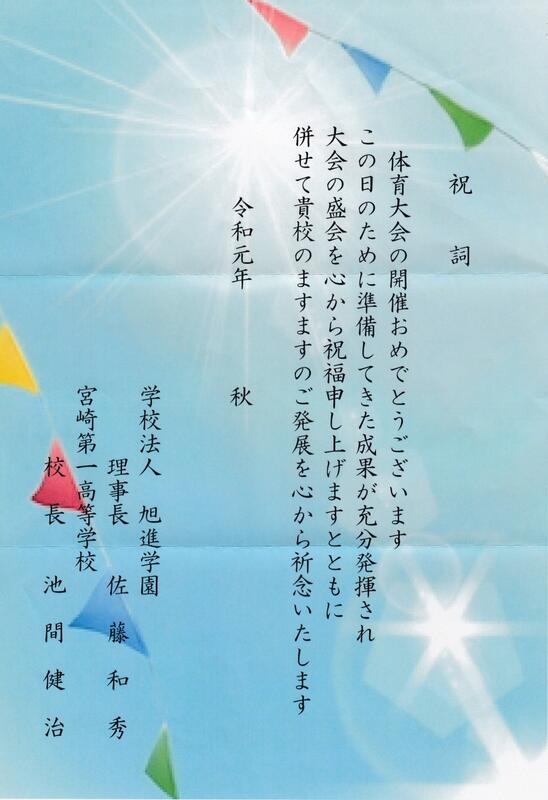 祝詞
体育大会の開催おめでとうございます
この日のために準備してきた成果が充分発揮され
大会の盛会を心から祝福申し上げますとともに
併せて貴校のますますのご発展を心から祈念いたします
令和元年 秋
学校法人 旭進学園
理事長 佐藤和秀
宮崎第一高等学校
校長 池間健治